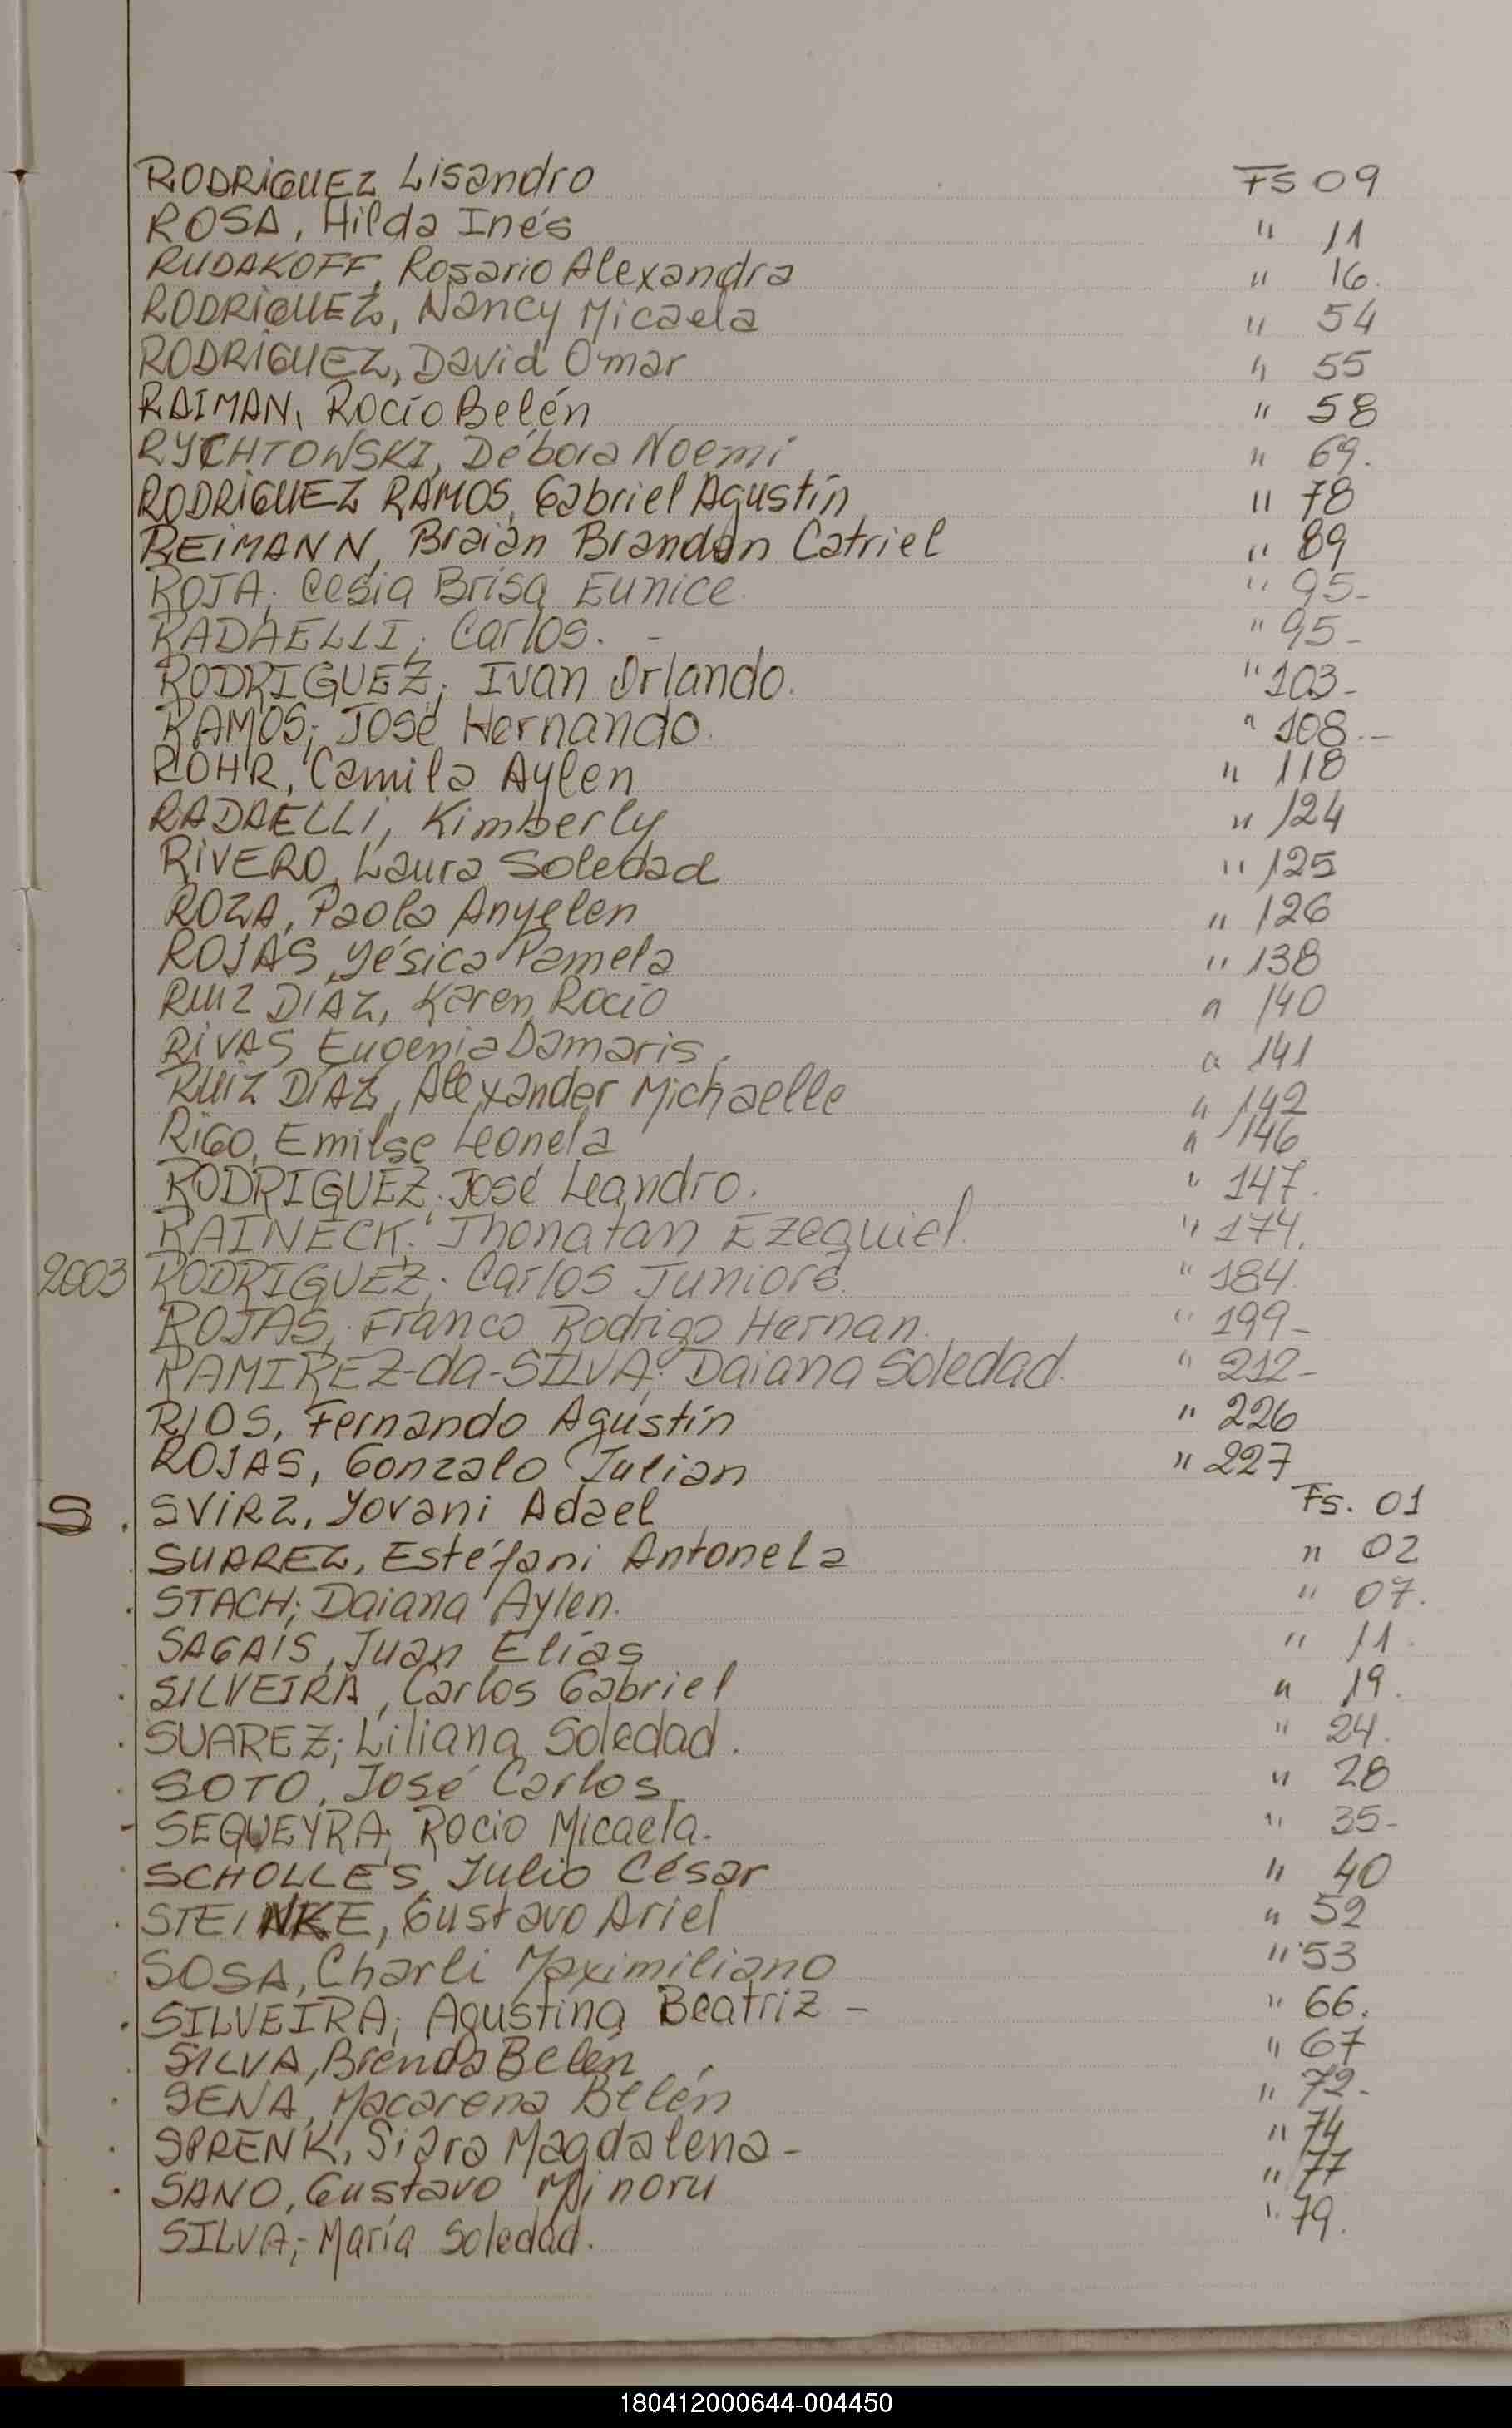 RODRIGUEZ Lisandro FS 09
ROSA, Hilda Inés " 11
RUDAKOFF, Rosario Alexandra " 16.
RODRIGUEZ, Nancy Micaela " 54
RODRIGUEZ, David Omar " 55
RAIMAN, Rocío Belén " 58
RYCHTOWSKI, Débora Noemí " 69.
RODRIGUEZ RAMOS, Gabriel Agustín " 78
REIMANN, Braian Brandon Catriel " 89
ROJA; Cesia Brisa Eunice. " 95-
RADAELLI; Carlos. - " 95-
RODRIGUEZ; Ivan Orlando. " 103-
RAMOS; José Hernando. " 108.-
ROHR, Camila Aylen " 118
RADAELLI, Kimberly " 124
RIVERO, Laura Soledad " 125
ROZA, Paola Anyelen " 126
ROJAS, Yésica Pamela " 138
RUIZ DIAZ, Karen Rocío " 140
RIVAS Eugenia Damaris. " 141
RUIZ DÍAZ, Alexander Michaelle " 142
RIGO, Emilse Leonela " 146
RODRIGUEZ; José Leandro. " 147.
RAINECK; Jhonatan Ezequiel. " 174.
2003 RODRIGUEZ; Carlos Juniors. " 184.
ROJAS; Franco Rodrigo Hernan. " 199-
RAMIREZ-da-SILVA; Daiana Soledad. " 212-
RIOS, Fernando Agustín " 226
ROJAS, Gonzalo Julian " 227
S . SVIRZ, Yovani Adael Fs. 01
. SUAREZ, Estéfani Antonela " 02
. STACH; Daiana Aylen. " 07.
SAGAIS, Juan Elías " 11.
. SILVEIRA, Carlos Gabriel " 19.
. SUAREZ; Liliana Soledad. " 24.
. SOTO, José Carlos " 28
- SEQUEYRA; Rocio Micaela. " 35-
. SCHOLLES, Julio César " 40
. STEINKE, Gustavo Ariel " 52
. SOSA, Charli Maximiliano " 53
. SILVEIRA; Agustina Beatriz - " 66.
. SILVA, Brenda Belén " 67
. SENA, Macarena Belén " 72-
. SPRENK, Siara Magdalena - " 74
. SANO, Gustavo Minoru " 77
SILVA;- María Soledad. " 79.
180412000644-004450